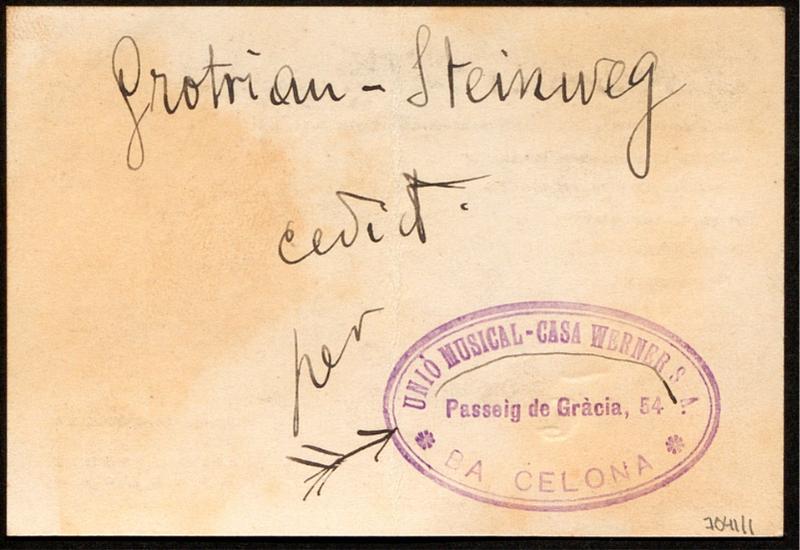 Grotrian - Steinweg
cedit.
per
UNIÓ MUSICAL-CASA WERNER S. A.
Passeig de Gràcia, 54
BA CELONA
7041/1